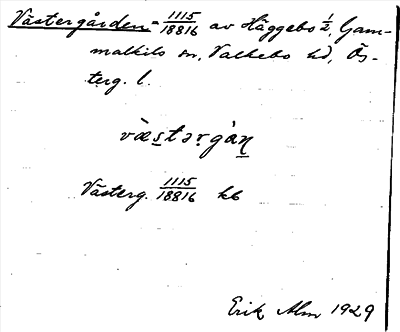 Västergården = 1115/18816 av Häggebo 1/2, Gam-
malkils sn, Valkebo hd, Ös-
terg. l.
Västerg. 1115/18816 kb
Erik Alm 1929